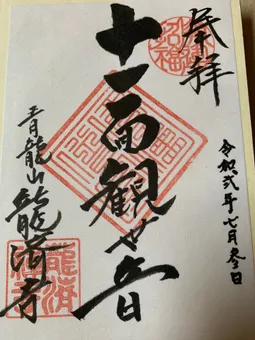 奉拝
令和弐年七月参日
十一面観世音
青龍山龍済寺
招福